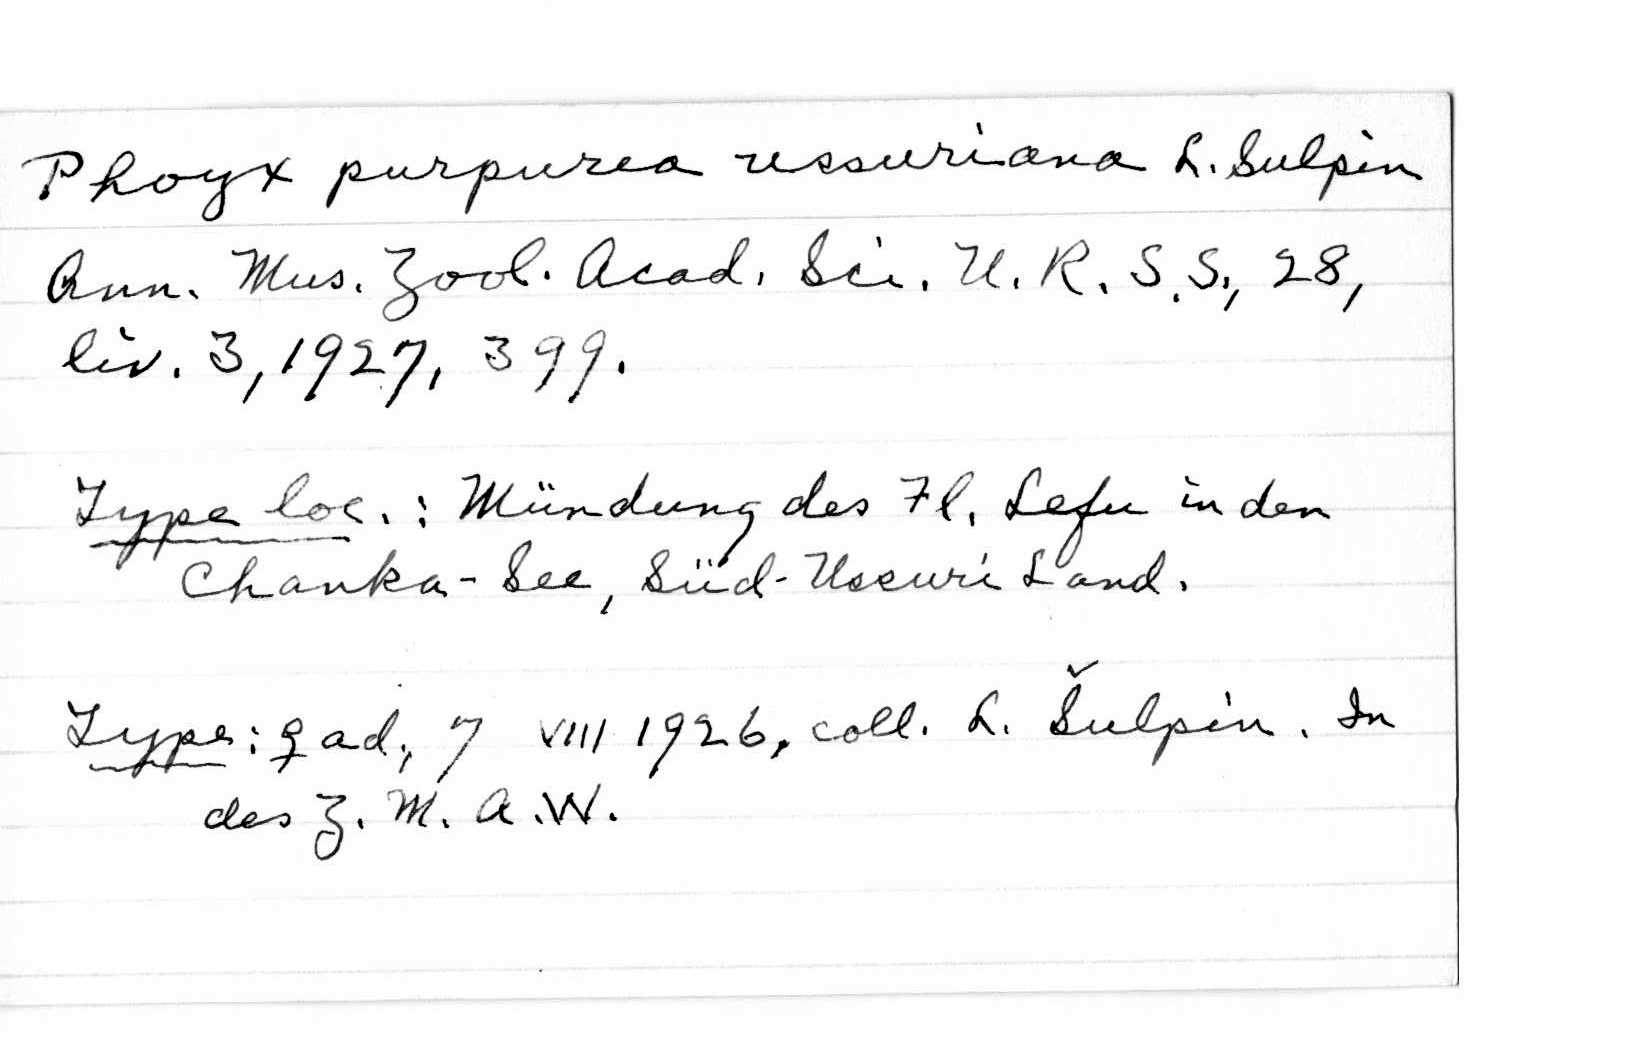 Phoyx purpurea ussuriana L. Sulpin
Ann. Mus. Zool. Acad. Sci. U.R.S.S., 28,
liv. 3, 1927, 399.
Type loc.: Mündung des Fl. Lefu in den
Chanka-See, Süd-Ussuri Land.
Type: ♀ ad., 7 VIII 1926, coll. L. Šulpin. In
des Z. M. A. W.